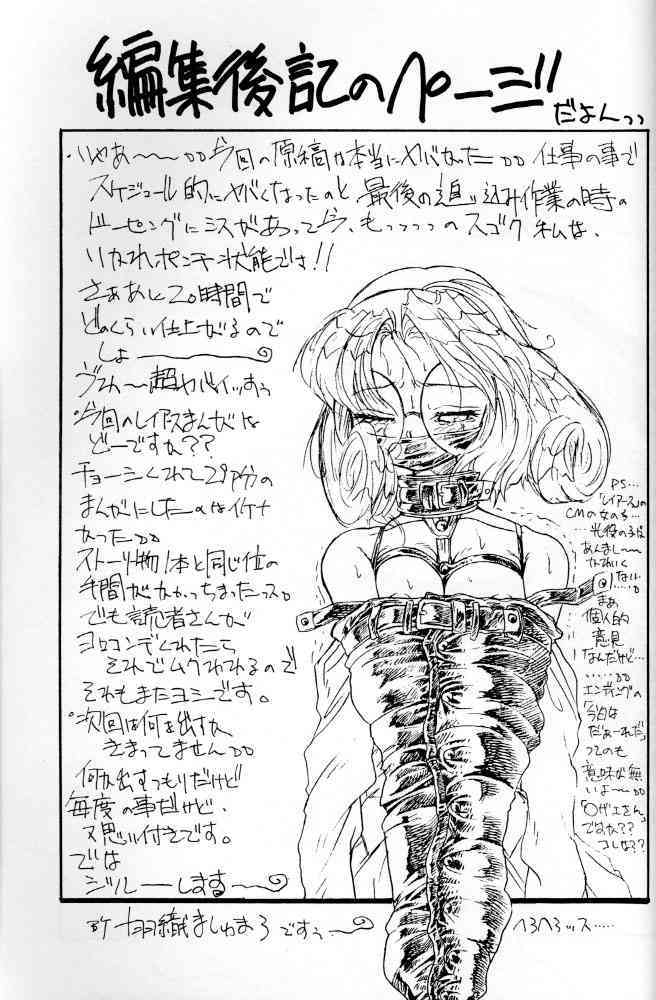 編集後記のページ!!
だよんっっ
・いやあ〜〜〜〇〇今回の原稿は本当にヤバかった〇〇仕事の事で
スケジュール的にヤバくなったのと最後の追い込み作業の時の
ドーピングにミスがあって今、もっつつつのスゴク私は、
いかれポンチ状態でさ!!
さああと20時間で
どのくらい仕上がるので
しょ———
ヴわ〜超ヤバイッすぅ
・今回のレイアースまんがは
どーですか??
チョーシくれて29P分の
まんがにしたのはイケナ
かった〇〇
ストーリー物1本と同じ位の
手間がかかっちまったっス。
でも読者さんが
ヨロコンデくれたら
それでムクわれるので
それもまたヨシです。
・次回は何を出すか
きまってません〇〇
何か出すつもりだけど
毎度の事だけど、
又思い付きです。
では
ジルーします〜
PS…
「レイアース」の
CMの女のち…
…光役の子は
あんまし〜〜
かわいく
ない…
……。
まあ
個人的
意見
なんだけど…
……〇〇
エンディングの
「今日は
だぁーれだ」
ってのも
意味が無
いよ〜〇〇
「〇ザエさん」
ですか??
コレは??
羽織ましゅまろですぅ〜
へろへろッス……